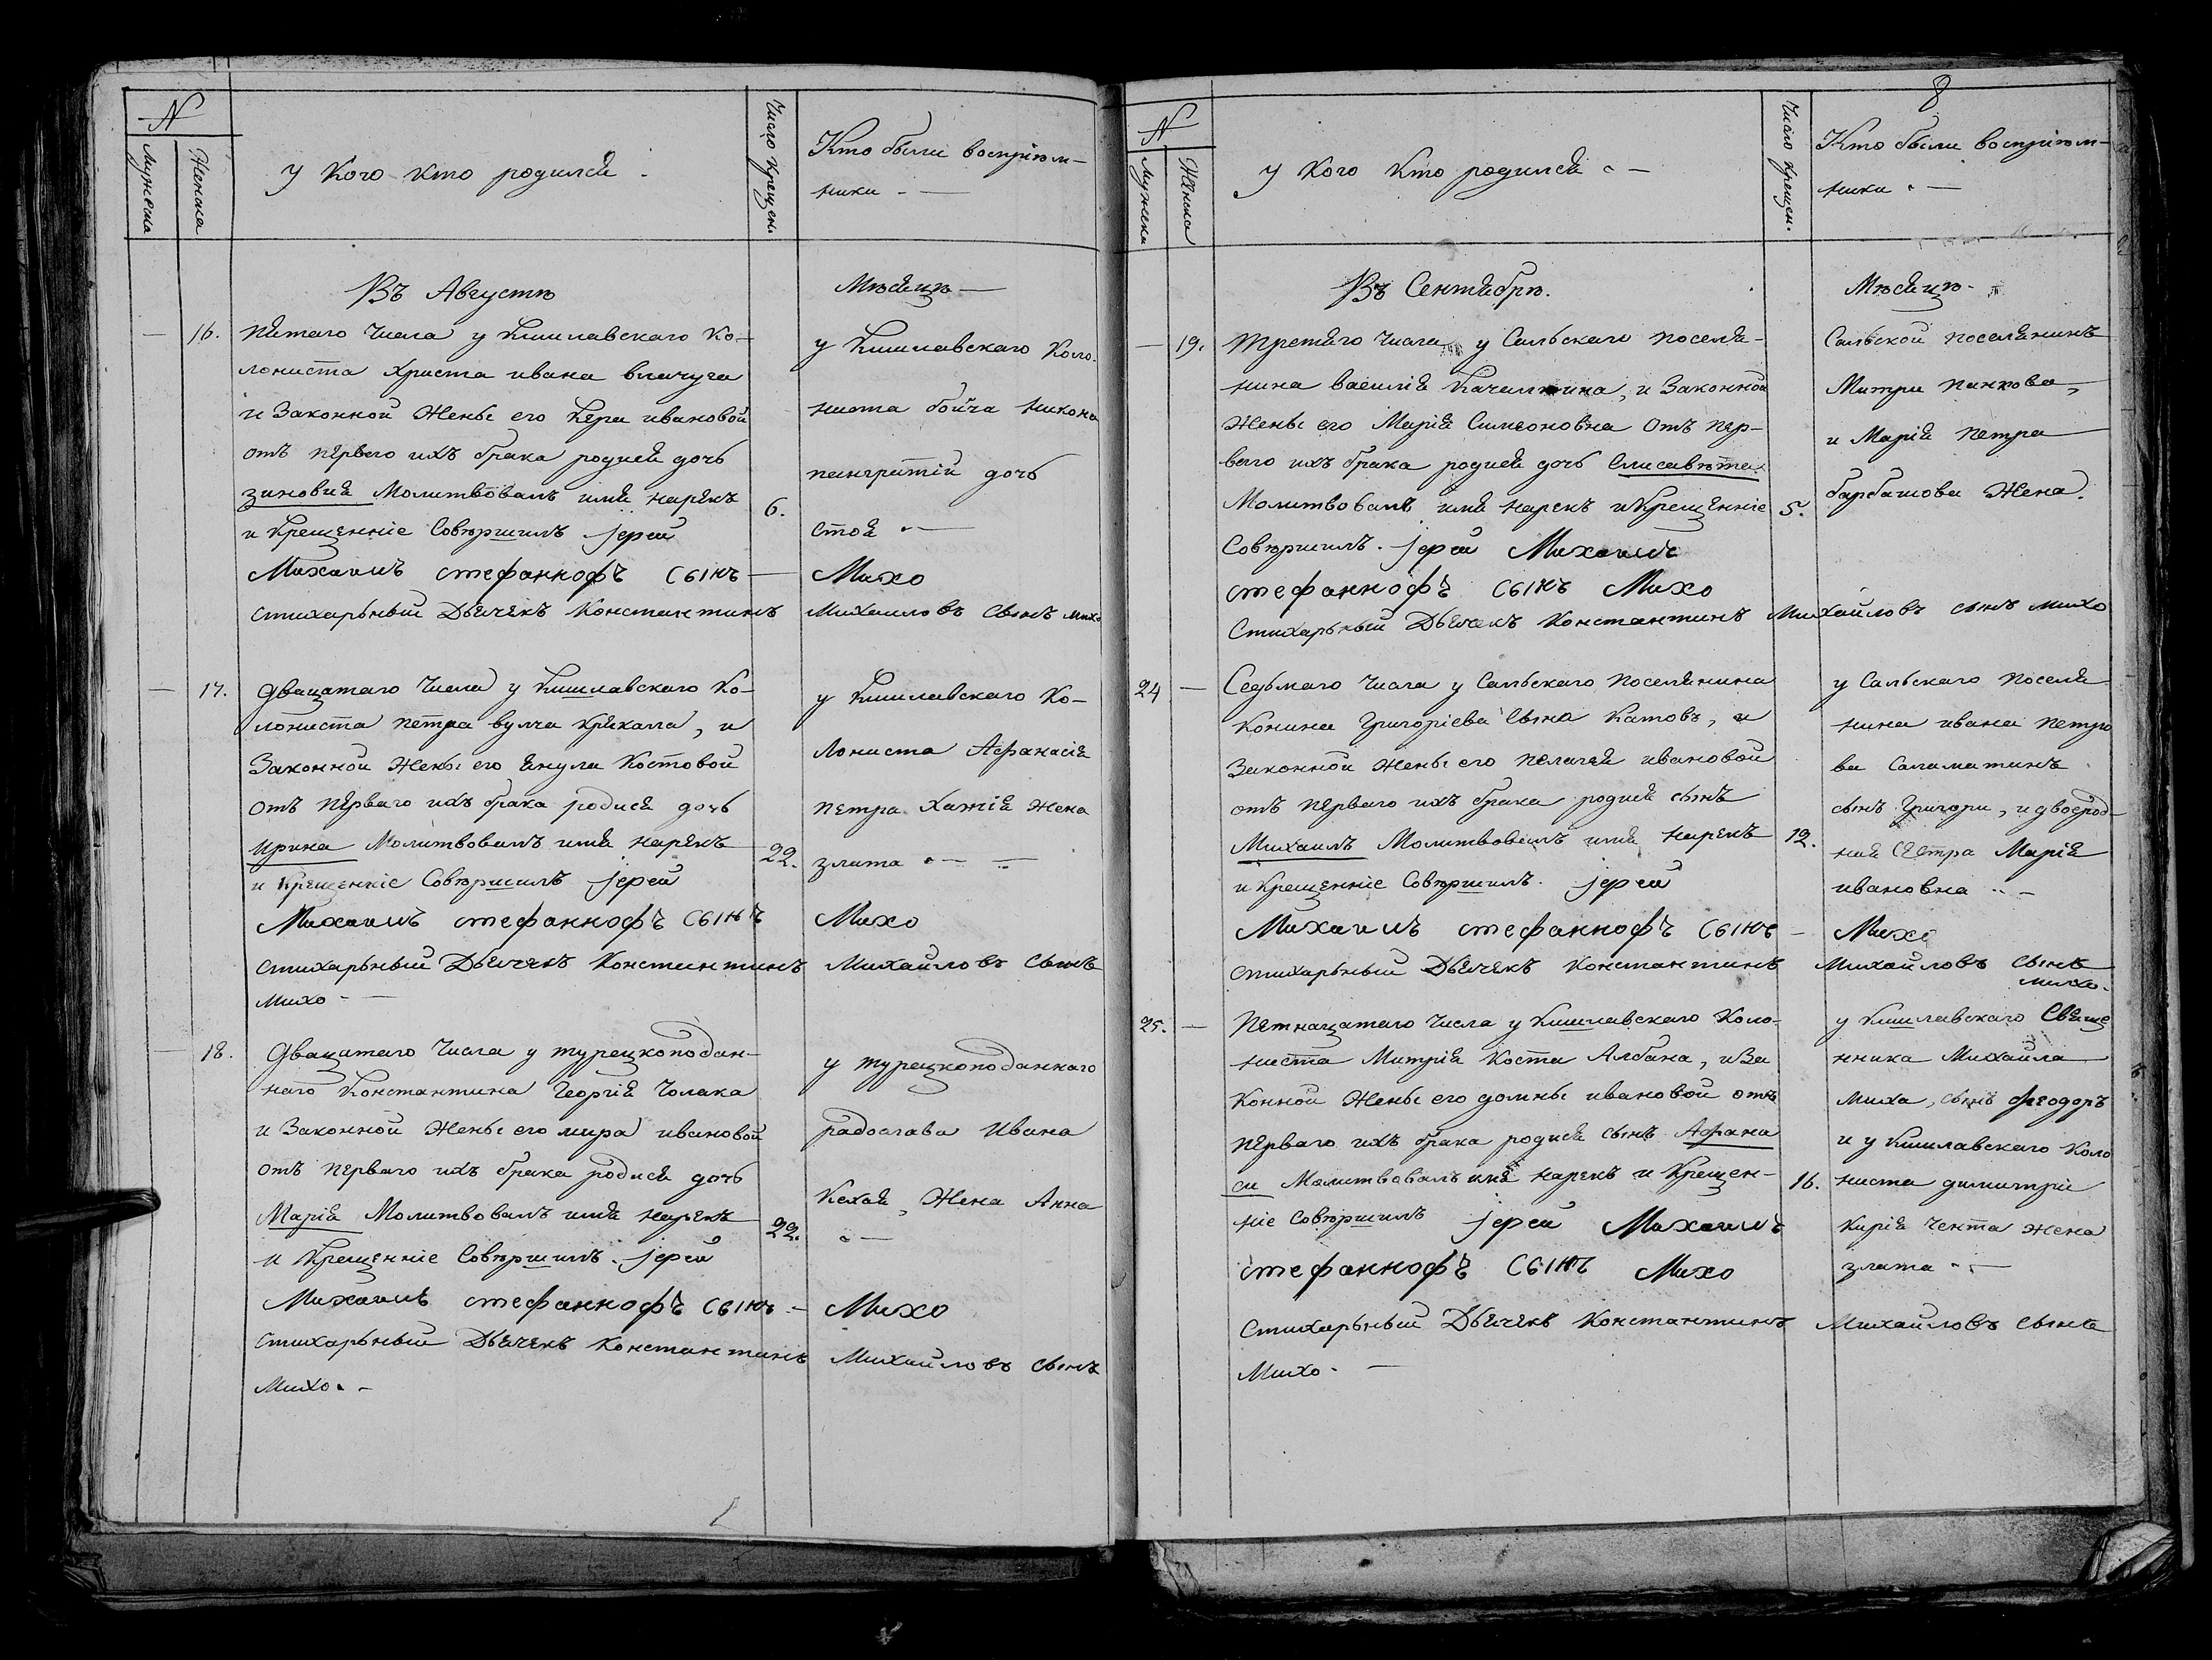 N
Мужеска
Женска
У Кого Кто родился
Число Крещен.
Кто были восприем-
ники
Въ Августѣ
Мѣсяцѣ
16.
пятаго Числа у Кишлавскаго Ко-
лониста христа ивана
и Законной Жены его Кера ивановой
отъ перваго ихъ брака родися дочь
зиновия Молитвовалъ имя нарекъ
6.
и Крещенніе Совершилъ јерей
Михаилъ стефанкофъ сынъ
Михо
стихарьный Дьячекъ Константинъ
Михаиловъ Сынъ Михо
у Кишлавскаго Коло-
ниста бойча никона
панкратїи дочь
стоя
17.
двацатаго Числа у Кишлавскаго Ко-
лониста петра вулча крякала, и
Законной Жены его янула Костовой
отъ перваго ихъ брака родися дочь
ирина Молитвовалъ имя нарекъ
22.
и Крещенніе Совершилъ јерей
Михаилъ стефанкофъ сынъ
Михо
стихарьный Дьячекъ Константинъ
Михайловъ Сынъ
Михо
у Кишлавскаго Ко-
лониста Афанасія
петра хажія жена
злата
18.
двацатаго Числа у турецкоподан-
наго Константина Георгія Чолака
и Законной Жены его мира ивановой
отъ перваго ихъ брака родися дочь
Марія Молитвовалъ имя нарекъ
22.
и Крещенніе Совершилъ. јерей
Михаилъ стефанкофъ сынъ
Михо
стихарьный Дьячекъ Константинъ
Михайловъ сынъ
Михо
у турецкоподанкаго
радослава Ивана
Кехая, Жена Анна
8
N
Мужеска
Женска
У Кого Кто родился
Число Крещен.
Кто были восприем-
ники
Въ Сентябрѣ.
Мѣсяцѣ
19.
третяго Числа у Сальского поселя-
нина василія, и Законной
Жены его Марія Симеоновна отъ пер-
ваго ихъ брака родися дочь Елисавѣта
Молитвовалъ имя нарекъ и Крещенніе
5.
Совершилъ. јерей Михаилъ
стефанкофъ сынъ Михо
Стихарьный Дьячекъ Константинъ Михайловъ сынъ михо
Сальской поселянинъ
Митри панкова,
и Марія петра
барбашова Жена.
24
Седьмаго Числа у Сальскаго поселянина
Конина Григоріева Сына Катовъ, и
Законной Жены его пелагея ивановой
отъ перваго ихъ брака родися сынъ
Михаилъ Молитвовалъ имя нарекъ
12.
и Крещенніе Совершилъ. јерей
Михаилъ стефанкофъ сынъ
Михо
стихарьный Дьячекъ Константинъ
Михайловъ сынъ
михо.
у Сальскаго поселя
нина ивана петро
ва Саламатинъ
сынъ Григори, и двоюрод-
ная Сестра Марія
ивановна
25.
петнацатаго Числа у Кишлавскаго Коло-
ниста Митрія Коста Албана, и За
Конной Жены его домны ивановой отъ
перваго ихъ брака родися сынъ Афана
си Молитвовалъ имя нарекъ и Крещен-
16.
ніе Совершилъ јерей Михаилъ
стефанкофъ сынъ Михо
Стихарьный Дьячекъ Константинъ
Михайловъ сынъ
Михо
у Кишлавскаго Свяще
нника Михаила
Миха, сынъ феодоръ
и у Кишлавскаго Коло
ниста димитріи
Кирія Чента жена
злата